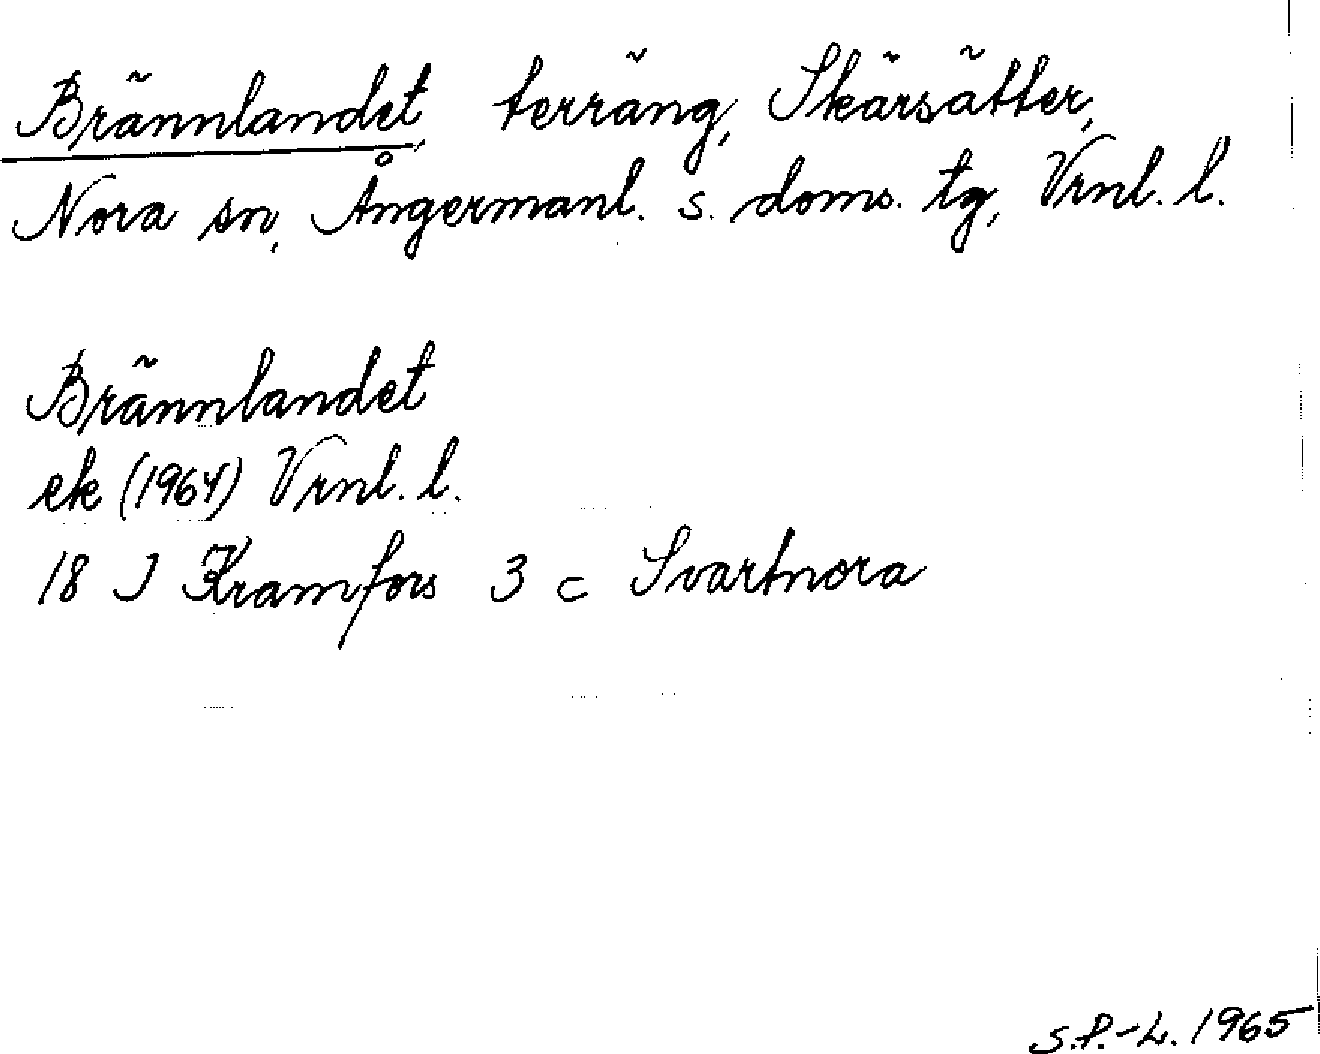 Brännlandet, terräng, Skärsätter,
Nora sn, Ångermanl. s. doms. tg, Vrnl. l.
Brännlandet
ek (1964) Vrnl. l.
18 J Kramfors 3 c Svartnora
S.P.-L. 1965